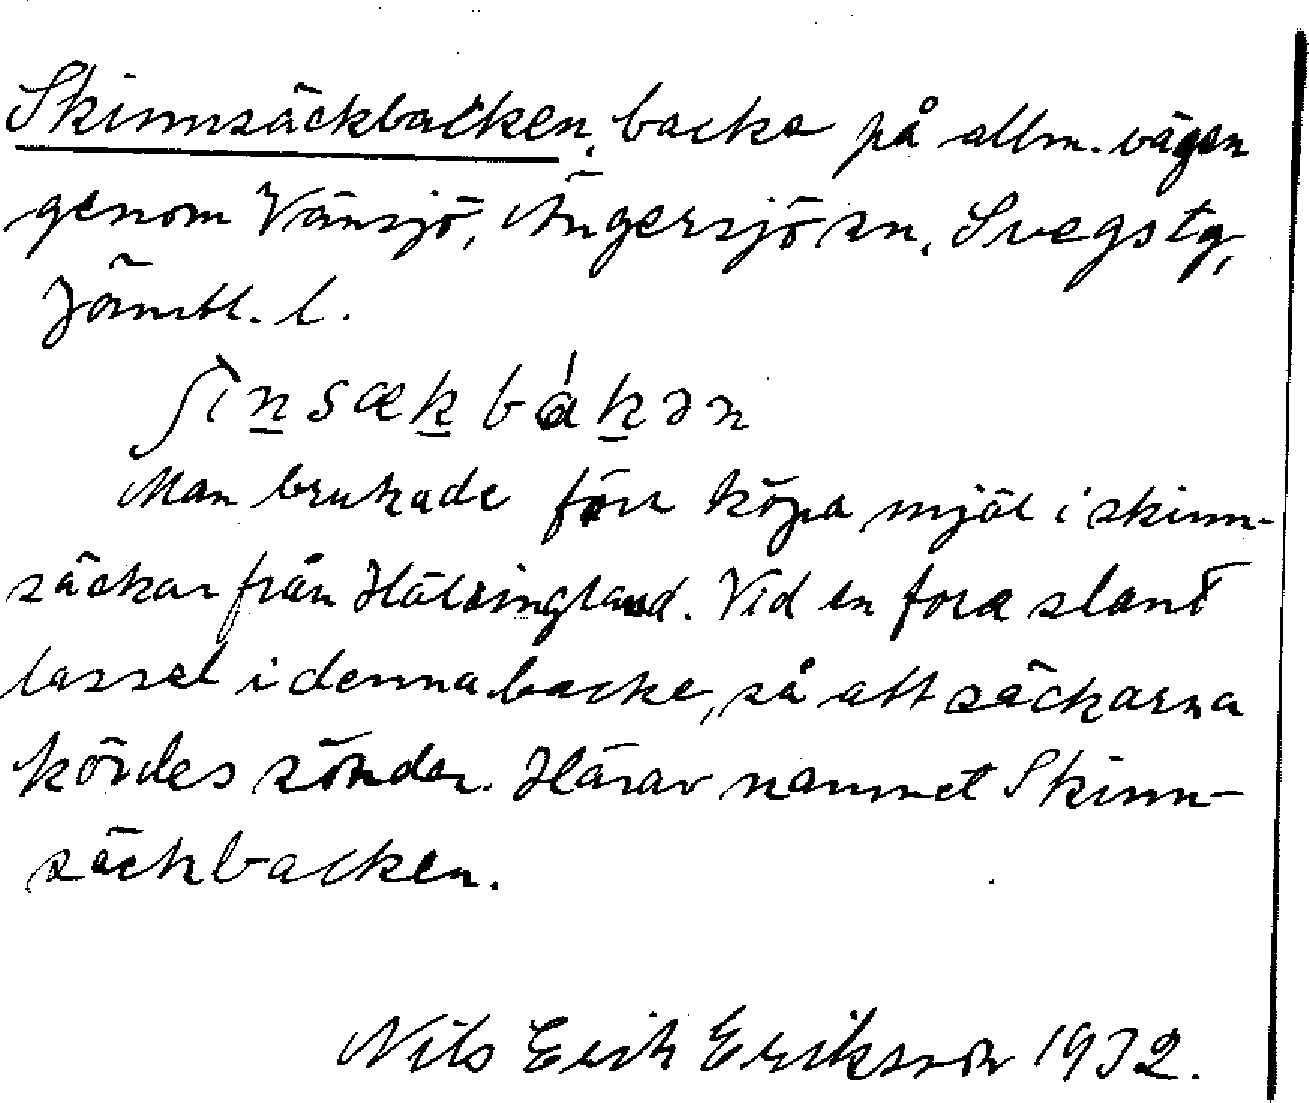 Skinnsäckbacken, backe på allm. vägen
genom Vänsjö, Ängersjö sn, Svegs tg,
Jämtl. l.
ʃin̲sæk̲bákə̲n
Man brukade förr köpa mjöl i skinn-
säckar från Hälsingland. Vid en fora slant
lasset i denna backe, så att säckarna
kördes sönder. Härav namnet Skinn-
säckbacken.
Nils Erik Eriksson 1932.